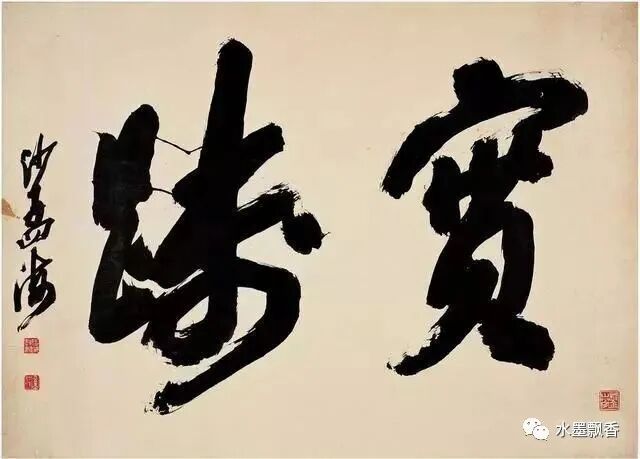 實踐
沙孟海
水墨飘香